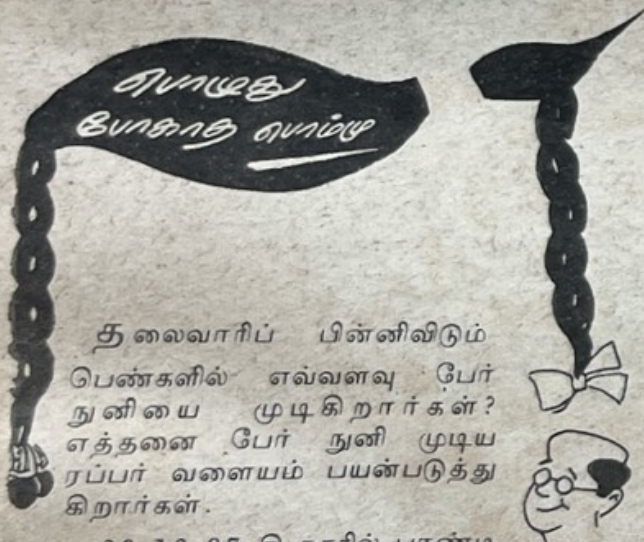 பொழுது
போகாத பொம்மு
தலைவாரிப் பின்னிவிடும்
பெண்களில் எவ்வளவு பேர்
நுனியை முடிகிறார்கள்?
எத்தனை பேர் நுனி முடிய
ரப்பர் வளையம் பயன்படுத்து
கிறார்கள்.